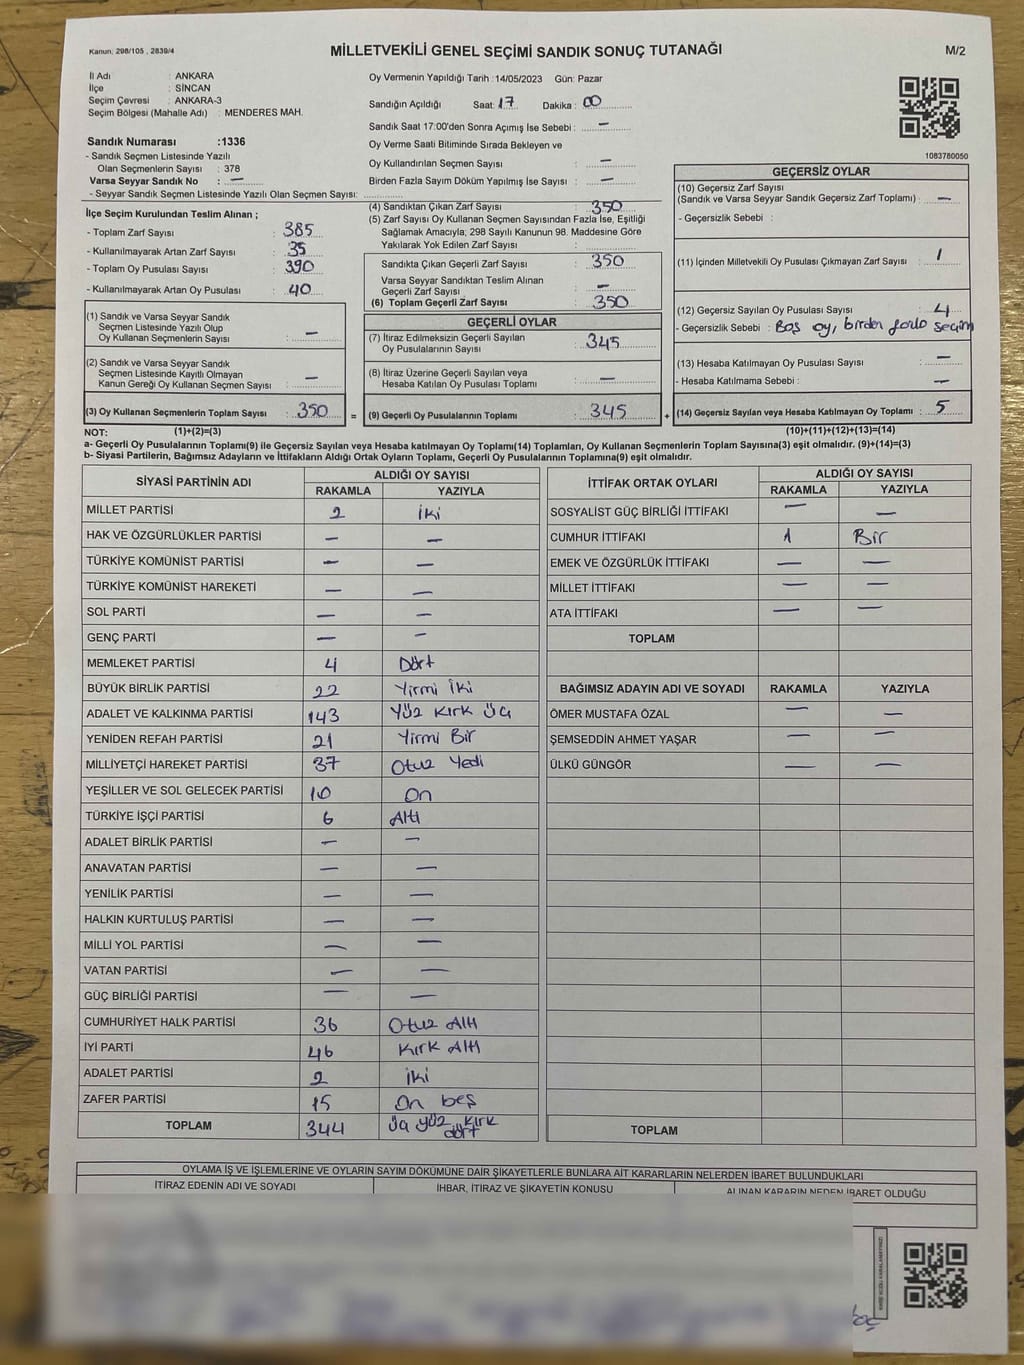 Kanun; 298/105 , 2839/4
MİLLETVEKİLİ GENEL SEÇİMİ SANDIK SONUÇ TUTANAĞI
M/2
İl Adı : ANKARA
İlçe : SİNCAN
Seçim Çevresi : ANKARA-3
Seçim Bölgesi (Mahalle Adı) : MENDERES MAH.
Sandık Numarası :1336
- Sandık Seçmen Listesinde Yazılı
Olan Seçmenlerin Sayısı : 378
Varsa Seyyar Sandık No : —
- Seyyar Sandık Seçmen Listesinde Yazılı Olan Seçmen Sayısı:
Oy Vermenin Yapıldığı Tarih :14/05/2023 Gün: Pazar
Sandığın Açıldığı Saat: 17 Dakika : 00
Sandık Saat 17:00'den Sonra Açımış İse Sebebi : —
Oy Verme Saati Bitiminde Sırada Bekleyen ve
Oy Kullandırılan Seçmen Sayısı : —
Birden Fazla Sayım Döküm Yapılmış İse Sayısı : —
1083780050
İlçe Seçim Kurulundan Teslim Alınan ;
- Toplam Zarf Sayısı : 385
- Kullanılmayarak Artan Zarf Sayısı : 35
- Toplam Oy Pusulası Sayısı : 390
- Kullanılmayarak Artan Oy Pusulası : 40
(1) Sandık ve Varsa Seyyar Sandık
Seçmen Listesinde Yazılı Olup
Oy Kullanan Seçmenlerin Sayısı : —
(2) Sandık ve Varsa Seyyar Sandık
Seçmen Listesinde Kayıtlı Olmayan
Kanun Gereği Oy Kullanan Seçmen Sayısı : —
(3) Oy Kullanan Seçmenlerin Toplam Sayısı : 350 =
(4) Sandıktan Çıkan Zarf Sayısı : 350
(5) Zarf Sayısı Oy Kullanan Seçmen Sayısından Fazla İse, Eşitliği
Sağlamak Amacıyla; 298 Sayılı Kanunun 98. Maddesine Göre
Yakılarak Yok Edilen Zarf Sayısı :
Sandıkta Çıkan Geçerli Zarf Sayısı : 350
Varsa Seyyar Sandıktan Teslim Alınan
Geçerli Zarf Sayısı : —
(6) Toplam Geçerli Zarf Sayısı : 350
GEÇERLİ OYLAR
(7) İtiraz Edilmeksizin Geçerli Sayılan
Oy Pusulalarının Sayısı : 345
(8) İtiraz Üzerine Geçerli Sayılan veya
Hesaba Katılan Oy Pusulası Toplamı : —
(9) Geçerli Oy Pusulalarının Toplamı : 345 +
GEÇERSİZ OYLAR
(10) Geçersiz Zarf Sayısı
(Sandık ve Varsa Seyyar Sandık Geçersiz Zarf Toplamı) : —
- Geçersizlik Sebebi :
(11) İçinden Milletvekili Oy Pusulası Çıkmayan Zarf Sayısı : 1
(12) Geçersiz Sayılan Oy Pusulası Sayısı : 4
- Geçersizlik Sebebi : Boş oy, birden fazla seçim
(13) Hesaba Katılmayan Oy Pusulası Sayısı : —
- Hesaba Katılmama Sebebi : —
(14) Geçersiz Sayılan veya Hesaba Katılmayan Oy Toplamı : 5
NOT: (1)+(2)=(3)
(10)+(11)+(12)+(13)=(14)
a- Geçerli Oy Pusulalarının Toplamı(9) ile Geçersiz Sayılan veya Hesaba katılmayan Oy Toplamı(14) Toplamları, Oy Kullanan Seçmenlerin Toplam Sayısına(3) eşit olmalıdır. (9)+(14)=(3)
b- Siyasi Partilerin, Bağımsız Adayların ve İttifakların Aldığı Ortak Oyların Toplamı, Geçerli Oy Pusulalarının Toplamına(9) eşit olmalıdır.
SİYASİ PARTİNİN ADI ALDIĞI OY SAYISI
RAKAMLA YAZIYLA
MİLLET PARTİSİ 2 iki
HAK VE ÖZGÜRLÜKLER PARTİSİ — —
TÜRKİYE KOMÜNİST PARTİSİ — —
TÜRKİYE KOMÜNİST HAREKETİ — —
SOL PARTİ — —
GENÇ PARTİ — —
MEMLEKET PARTİSİ 4 Dört
BÜYÜK BİRLİK PARTİSİ 22 Yirmi İki
ADALET VE KALKINMA PARTİSİ 143 Yüz Kırk Üç
YENİDEN REFAH PARTİSİ 21 Yirmi Bir
MİLLİYETÇİ HAREKET PARTİSİ 37 Otuz Yedi
YEŞİLLER VE SOL GELECEK PARTİSİ 10 On
TÜRKİYE İŞÇİ PARTİSİ 6 Altı
ADALET BİRLİK PARTİSİ — —
ANAVATAN PARTİSİ — —
YENİLİK PARTİSİ — —
HALKIN KURTULUŞ PARTİSİ — —
MİLLİ YOL PARTİSİ — —
VATAN PARTİSİ — —
GÜÇ BİRLİĞİ PARTİSİ — —
CUMHURİYET HALK PARTİSİ 36 Otuz Altı
İYİ PARTİ 46 Kırk Altı
ADALET PARTİSİ 2 iki
ZAFER PARTİSİ 15 On beş
TOPLAM 344 Üç yüz kırk dört
İTTİFAK ORTAK OYLARI ALDIĞI OY SAYISI
RAKAMLA YAZIYLA
SOSYALİST GÜÇ BİRLİĞİ İTTİFAKI — —
CUMHUR İTTİFAKI 1 Bir
EMEK VE ÖZGÜRLÜK İTTİFAKI — —
MİLLET İTTİFAKI — —
ATA İTTİFAKI — —
TOPLAM
BAĞIMSIZ ADAYIN ADI VE SOYADI RAKAMLA YAZIYLA
ÖMER MUSTAFA ÖZAL — —
ŞEMSEDDİN AHMET YAŞAR — —
ÜLKÜ GÜNGÖR — —
TOPLAM
OYLAMA İŞ VE İŞLEMLERİNE VE OYLARIN SAYIM DÖKÜMÜNE DAİR ŞİKAYETLERLE BUNLARA AİT KARARLARIN NELERDEN İBARET BULUNDUKLARI
İTİRAZ EDENİN ADI VE SOYADI İHBAR, İTİRAZ VE ŞİKAYETİN KONUSU ALINAN KARARIN NEDEN İBARET OLDUĞU